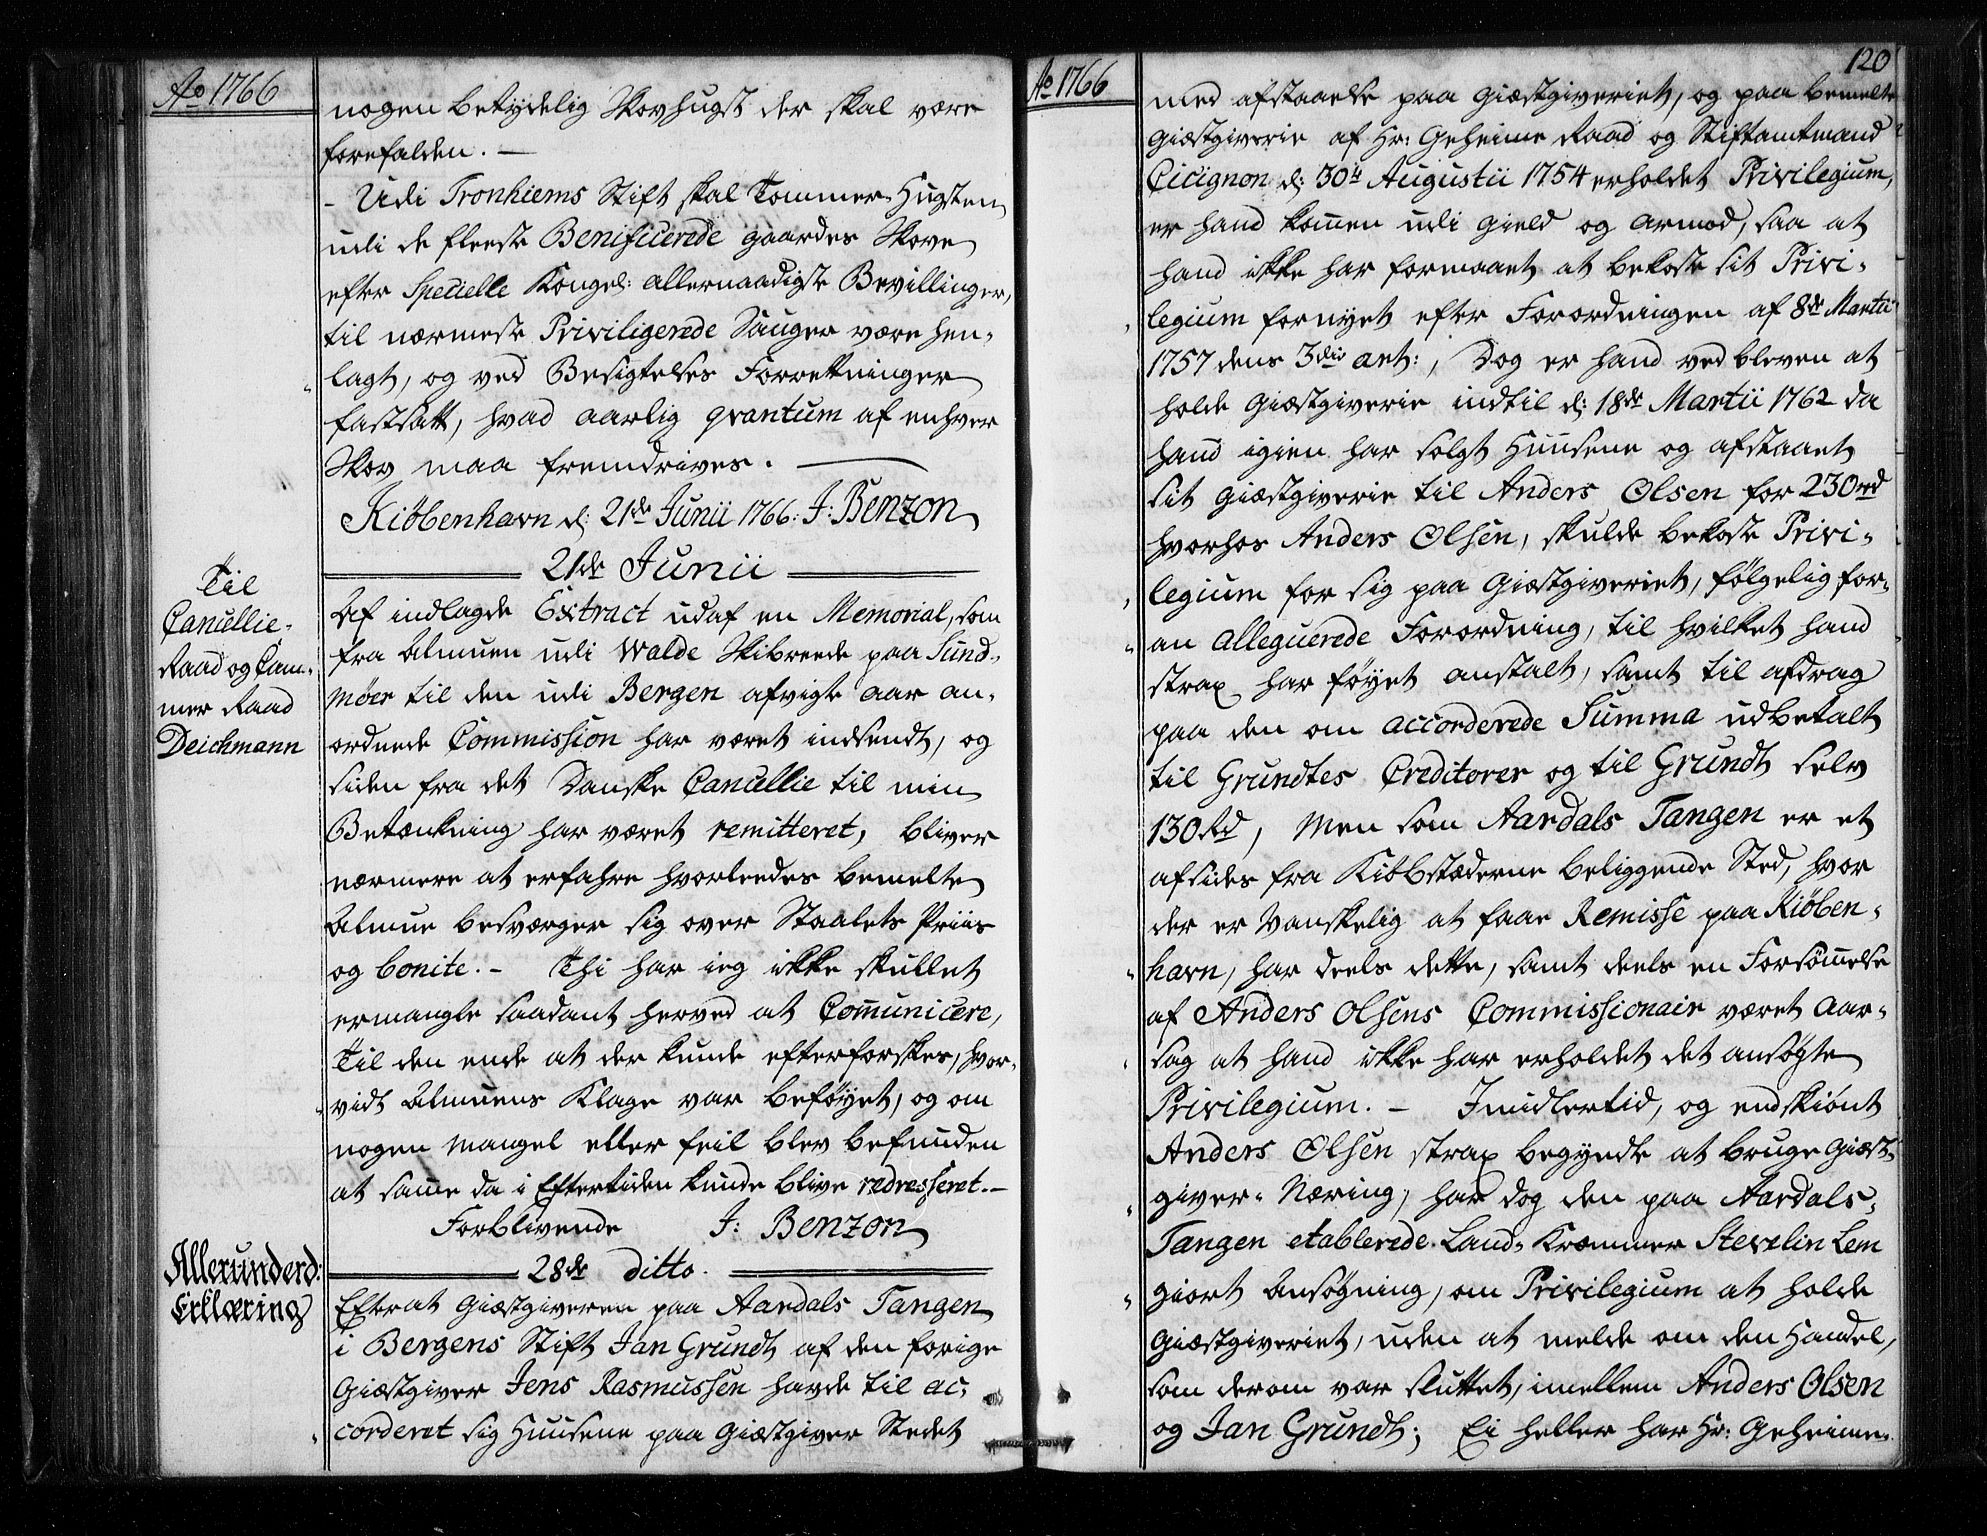 Ao 1766
nogen betydelig Skovhugst der skal være
forefalden. —
- Udi Tronhiems Stift skal Tømmer-Hugsten
udi de fleeste Benificerede gaardes Skove
efter Specielle Kongel: allernaadigste Bevillinger,
til nærmeste Priviligerede Sauger være hen-
lagt, og ved Besigtelses Forretninger
fastsatt, hvad aarlig qvantum af enhver
Skov maa fremdrives. —
Kiøbenhavn d: 21de Junii 1766. J: Benzon
21de Junii
Til
Cancellie-
Raad og Cam-
mer Raad
Deichmann
Af indlagde Extract udaf en Memorial, som
fra Almuen udi Walde Skibreede paa Sund-
møer til den udi Bergen afvigte aar an-
ordnede Commission har været indsendt, og
siden fra det Danske Cancellie til min
Betænkning har været remitteret, bliver
nærmere at erfahre hvorleedes bemelte
Almue besværger sig over Staalets Priis
og bonite. - Thi har ieg ikke skullet
ermangle saadant herved at Com̄unicere,
Til den ende at der kunde efterforskes, hvor-
vidt Almuens Klage var beføyet, og om
nogen Mangel eller feil blev befunden
at sam̄e da i Eftertiden kunde blive redresseret. -
Forblivende J: Benzon
28de ditto.
Allerunderd:
Erklæring
Efterat Giæstgiveren paa Aardals Tangen
i Bergens Stift Jan Grundt af den forige
Giæstgiver Jens Rasmussen havde til ac-
corderet sig Huusene paa Giæstgiver Stedet
Ao 1766
120
med afstaaelse paa Giæstgiveriet, og paa bemelte
Giæstgiverie af Hr: Geheime Raad og Stiftamtmand
Cicignon d: 30te Augustii 1754 erholdet Privilegium,
er hand kom̄en udi Gield og Armod, saa at
hand ikke har formaaet at bekoste sit Privi-
legium fornyet efter Forordningen af 8de Martii
1757 dens 3die art:, Dog er hand vedbleven at
holde Giæstgiverie indtil d: 18de Martii 1762 da
hand igien har solgt Huusene og afstaaet
sit Giæstgiverie til Anders Olsen for 230rd
hvorhos Anders Olsen, skulde bekoste Privi-
legium for sig paa Giæstgiveriet, følgelig for-
an alleguerede Forordning, til hvilket hand
strax har føyet anstalt, samt til afdrag
paa den om accorderede Summa udbetalt
til Grundtes Creditorer og til Grundt selv
130Rd, Men som Aardals Tangen er et
afsides fra Kiøbstæderne beliggende Sted, hvor
der er Vanskelig at faae Remisse paa Kiøben-
havn, har deels dette, samt deels en Forsøm̄else
af Anders Olsens Commissionair været Aar-
sag at hand ikke har erholdet det ansøgte
Privilegium. - Imidlertid, og endskiønt
Anders Olsen strax begyndte at bruge Giæst-
giver- Næring, har dog den paa Aardals-
Tangen etablerede Land- Kræmmer Stevelin Lem
giort Ansøgning, om Privilegium at holde
Giæstgiveriet, uden at melde om den Handel,
som derom var sluttet, imellem Anders Olsen
og Jan Grundt; Ei heller har Hr: Geheime-